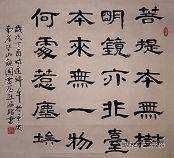 菩提本無樹
明鏡亦非臺
本來無一物
何處惹塵埃
歲次丁酉